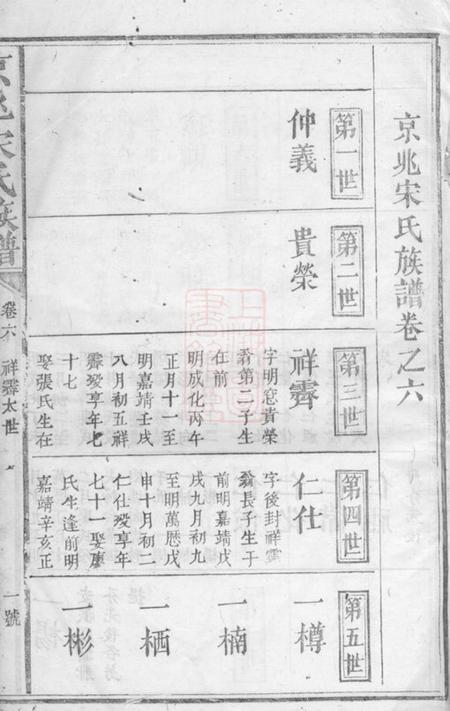 京兆宋氏族譜卷之六
第一世
仲義
第二世
貴榮
第三世
祥霽
字明怠貴榮
翁第二子生
在前
明成化丙午
正月十一至
明嘉靖壬戌
八月初五祥
霽歿享年七
十七
娶張氏生在
第四世
仁仕
字後封祥霽
翁長子生于
前明嘉靖戊
戌九月初九
至明萬歷戊
申十月初二
仁仕歿享年
七十一娶廖
氏生逢前明
嘉靖辛亥正
第五世
一樽
一楠
一栖
一彬
京兆宋氏族譜
卷六
祥霽太世
一號